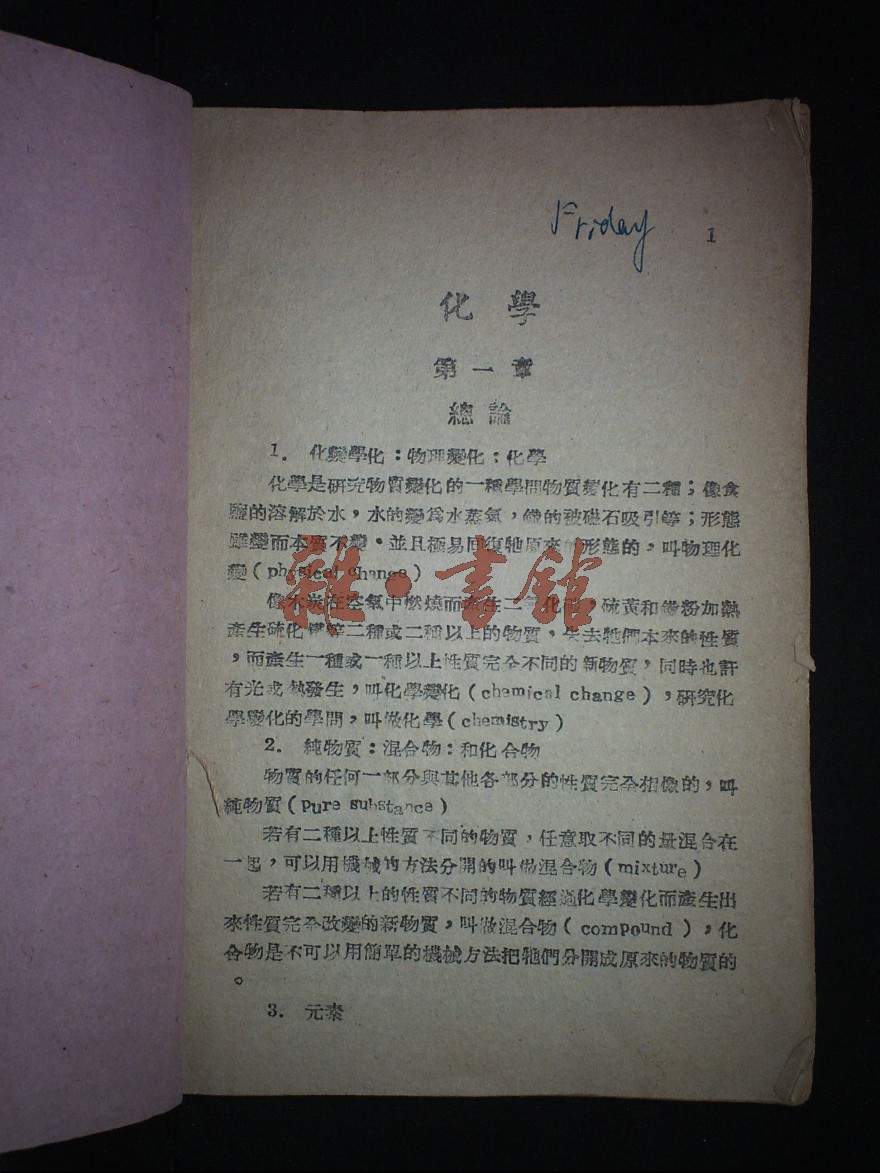 Friday
1
化學
第一章
總論
1. 化變學化：物理變化：化學
化學是研究物質變化的一種學問物質變化有二種；像食
鹽的溶解於水，水的變爲水蒸氣，鐵的被磁石吸引等；形態
雖變而本質不變。並且極易回復牠原來的形態的，叫物理化
變(physical change)
像木炭在空氣中燃燒而產生二氧化碳，硫黃和鐵粉加熱
產生硫化鐵等二種或二種以上的物質，失去牠們本來的性質
，而產生一種或一種以上性質完全不同的新物質，同時也許
有光或熱發生，叫化學變化(chemical change)，研究化
學變化的學問，叫做化學(chemistry)
2. 純物質：混合物：和化合物
物質的任何一部分與其他各部分的性質完全相像的，叫
純物質(pure substance)
若有二種以上性質不同的物質，任意取不同的量混合在
一起，可以用機械的方法分開的叫做混合物(mixture)
若有二種以上的性質不同的物質經過化學變化而產生出
來性質完全改變的新物質，叫做混合物(compound)，化
合物是不可以用簡單的機械方法把牠們分開成原來的物質的
。
3. 元素
雜·書館